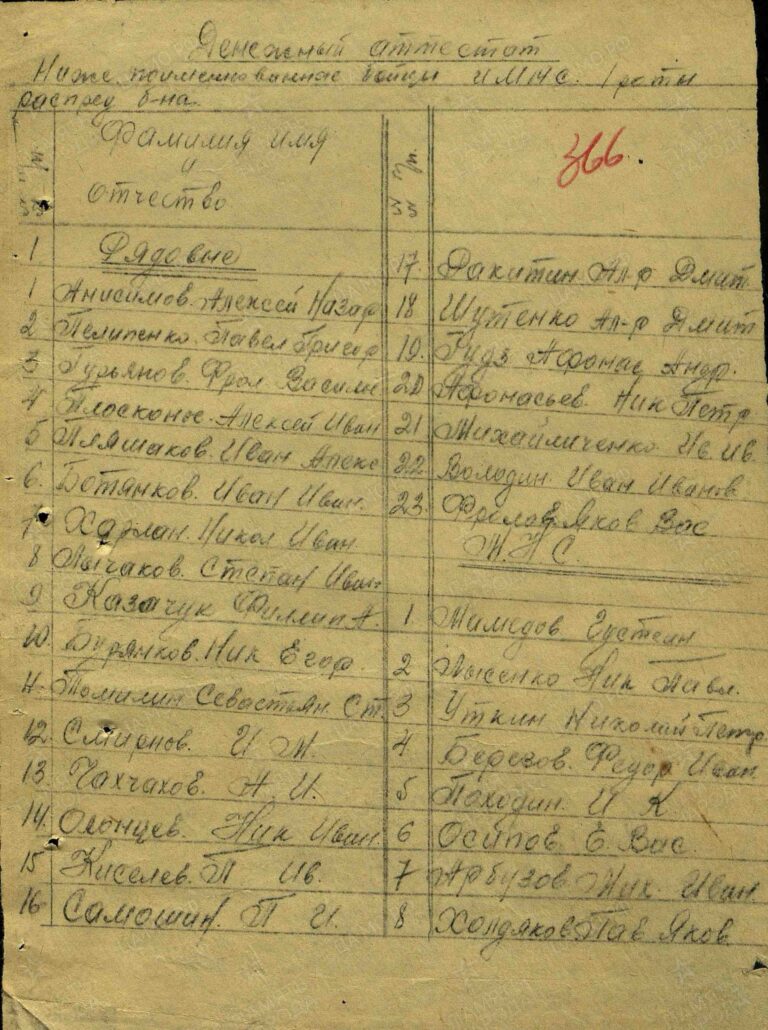 Денежный аттестат
Ниже поименованные бойцы и МНС. 1 роты
распред б-на.
№ п/п
Фамилия имя
и
отчество
1 Рядовые
1 Анисимов Алексей Назар
2 Пелипенко Павел Григор
3 Гурьянов Фрол Васили
4 Алексей Иван
5 Пляшаков Иван Алекс
6. Ботянков. Иван Иван.
7 Харлан. Никол Иван
8 Лычаков. Степан Иван
9 Казачук Филлип А.
10 Бурянков. Ник Егор.
11. Томилин Севастьян Ст.
12. Смирнов. И М.
13. Чахчахов. А. И.
14. Олонцев. Ник Иван.
15 Киселев. П Ив.
16 Самошин П И.
№ п/п.
366.
17. Ракитин Ал-р Дмит
18 Шутенко Ал-р Дмит
19. Гудз Афонас Андр.
20 Афонасьев. Ник Петр
21 Михайличенко Ив. Ив.
22 Володин. Иван Иванов
23. Фролов Яков Вас
М.Н.С.
1 Мамедов
2 Лысенко Ник Павл.
3 Уткин Николай Петр
4 Березов. Федор Иван
5 Походин. И К
6 Осипов Е. Вас.
7 Арбузов Мих. Иван
8 Холдяков Пав Яков